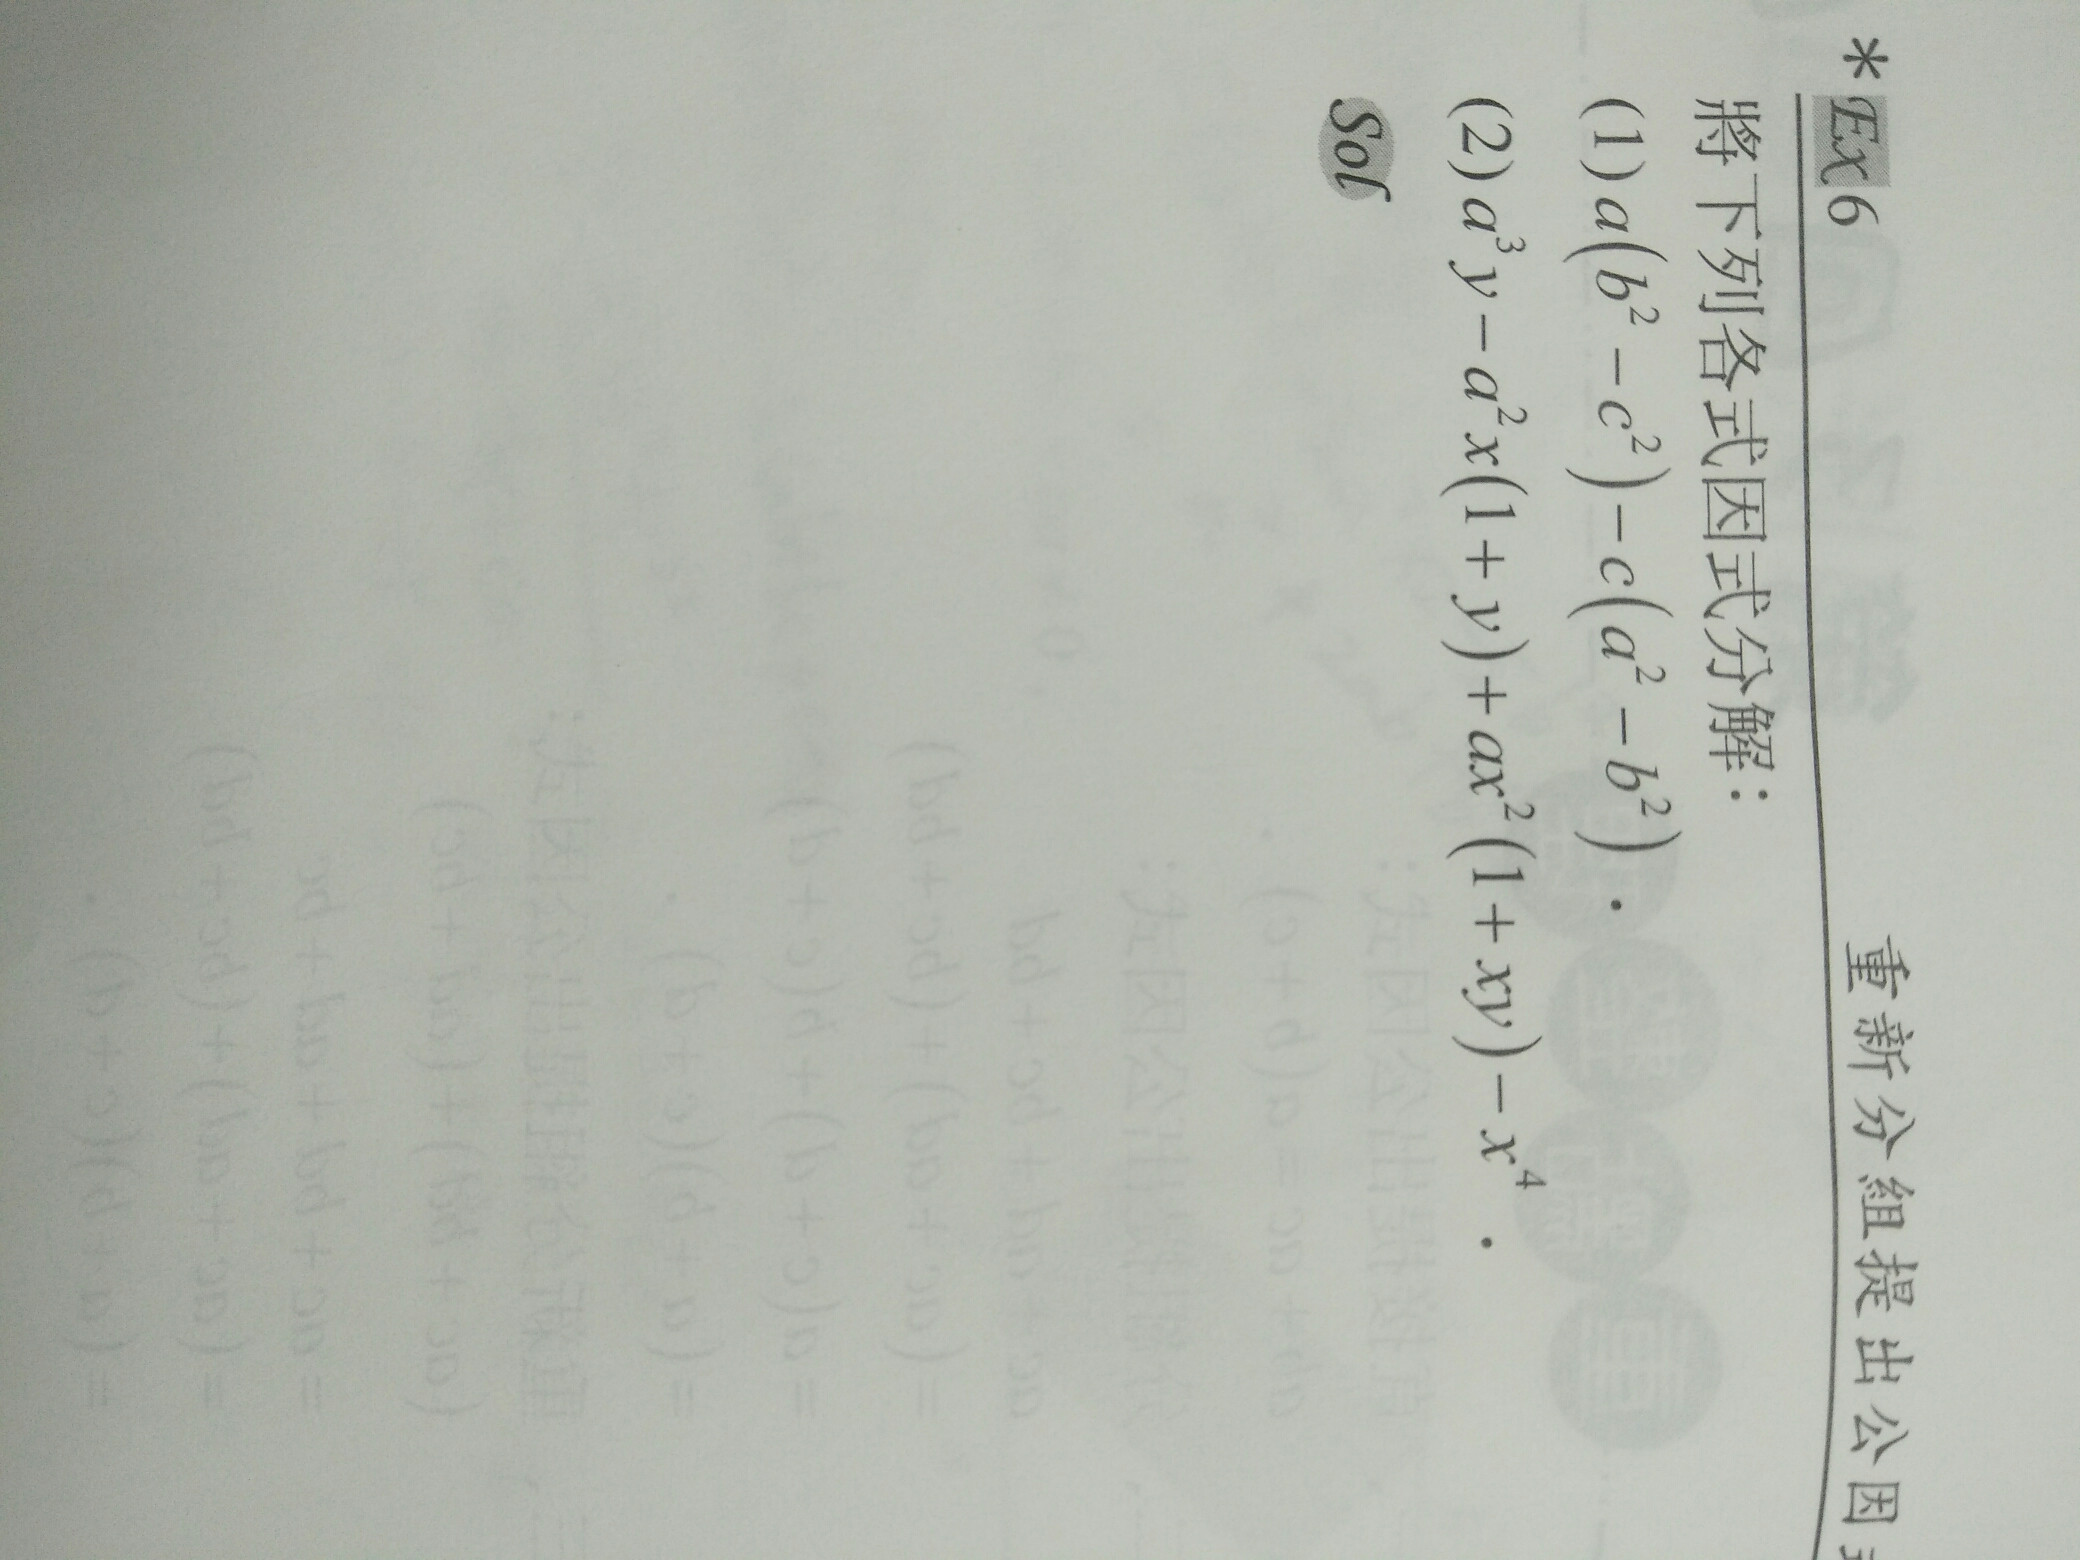 *Ex 6 重新分組提出公因
將下列各式因式分解：
(1) a(b²－c²)－c(a²－b²)．
(2) a³y－a²x(1＋y)＋ax²(1＋xy)－x⁴．
Sol